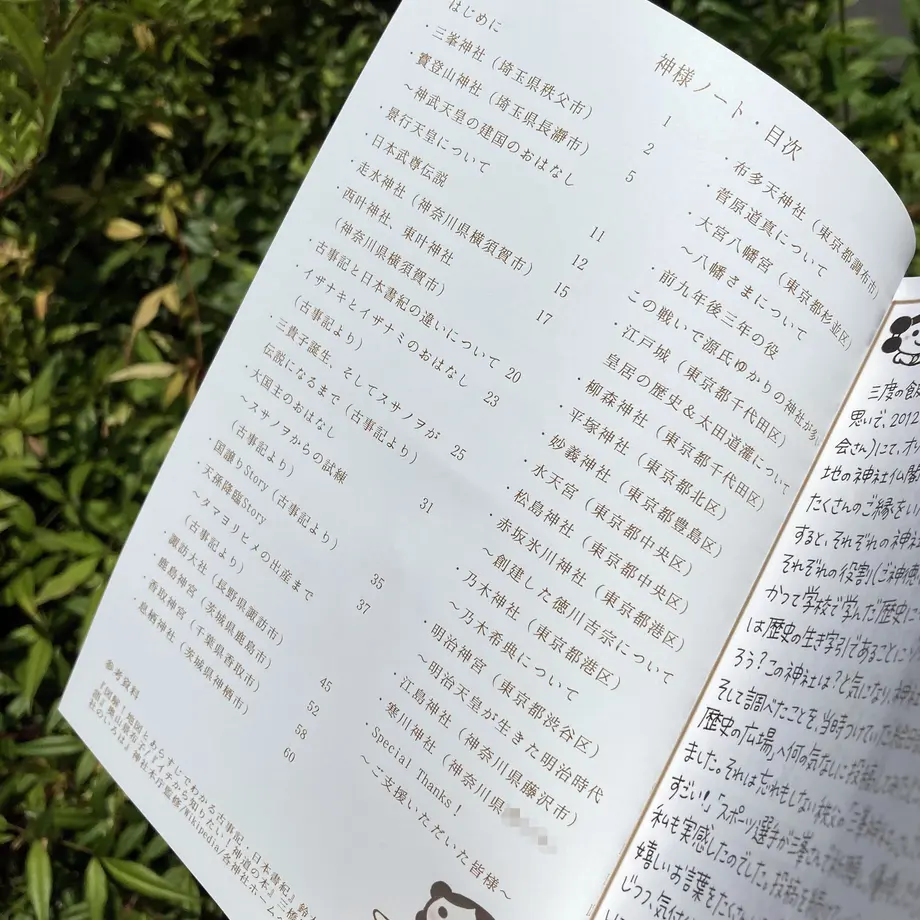 神様ノート・目次
はじめに
三峯神社（埼玉県秩父市） 1
寳登山神社（埼玉県長瀞市） 2
～神武天皇の建国のおはなし 5
・景行天皇について
・日本武尊伝説 11
・走水神社（神奈川県横須賀市） 12
・西叶神社、東叶神社 15
（神奈川県横須賀市） 17
・古事記と日本書紀の違いについて 20
・イザナキとイザナミのおはなし 23
（古事記より）
・三貴子誕生、そしてスサノヲが 25
伝説になるまで（古事記より）
・大国主のおはなし 31
～スサノヲからの試練
（古事記より）
・国譲りStory（古事記より） 35
・天孫降臨Story 37
～タマヨリヒメの出産まで
（古事記より）
・諏訪大社（長野県諏訪市） 45
・鹿島神宮（茨城県鹿島市） 52
・香取神宮（千葉県香取市） 58
・息栖神社（茨城県神栖市） 60
参考資料
『図解！地図とあらすじでわかる！古事記・日本書紀』
神社本庁監修/Wikipedia/各神社ホーム
・布多天神社（東京都調布市）
・菅原道真について
・大宮八幡宮（東京都杉並区）
～八幡さまについて
・前九年後三年の役
この戦いで源氏ゆかりの神社が多い
・江戸城（東京都千代田区）
皇居の歴史＆太田道灌について
・柳森神社（東京都千代田区）
・平塚神社（東京都北区）
・妙義神社（東京都豊島区）
・水天宮（東京都中央区）
・松島神社（東京都中央区）
・赤坂氷川神社（東京都港区）
～創建した徳川吉宗について
・乃木神社（東京都港区）
～乃木希典について
・明治神宮（東京都渋谷区）
～明治天皇が生きた明治時代
・江島神社（神奈川県藤沢市）
・寒川神社（神奈川県
Special Thanks！
～ご支援いただいた皆様～
三度の飯
思いで、201
会さん）にて、オリ
地の神社仏閣
たくさんのご縁をい
すると、それぞれの神社
それぞれの役割（ご神徳
かつて学校で学んだ歴史上
は歴史の生き字引であることに
ろう？この神社は？と気になり、神社
そして調べたことを、当時つけていた
歴史の広場」へ何の気なしに投稿して
ました。それは忘れもしない秩父の三峯神社
すごい！」「スポーツ選手が三峯
私も実感したのでした。投稿を
嬉しいお言葉をたくさ
じつつ、気付